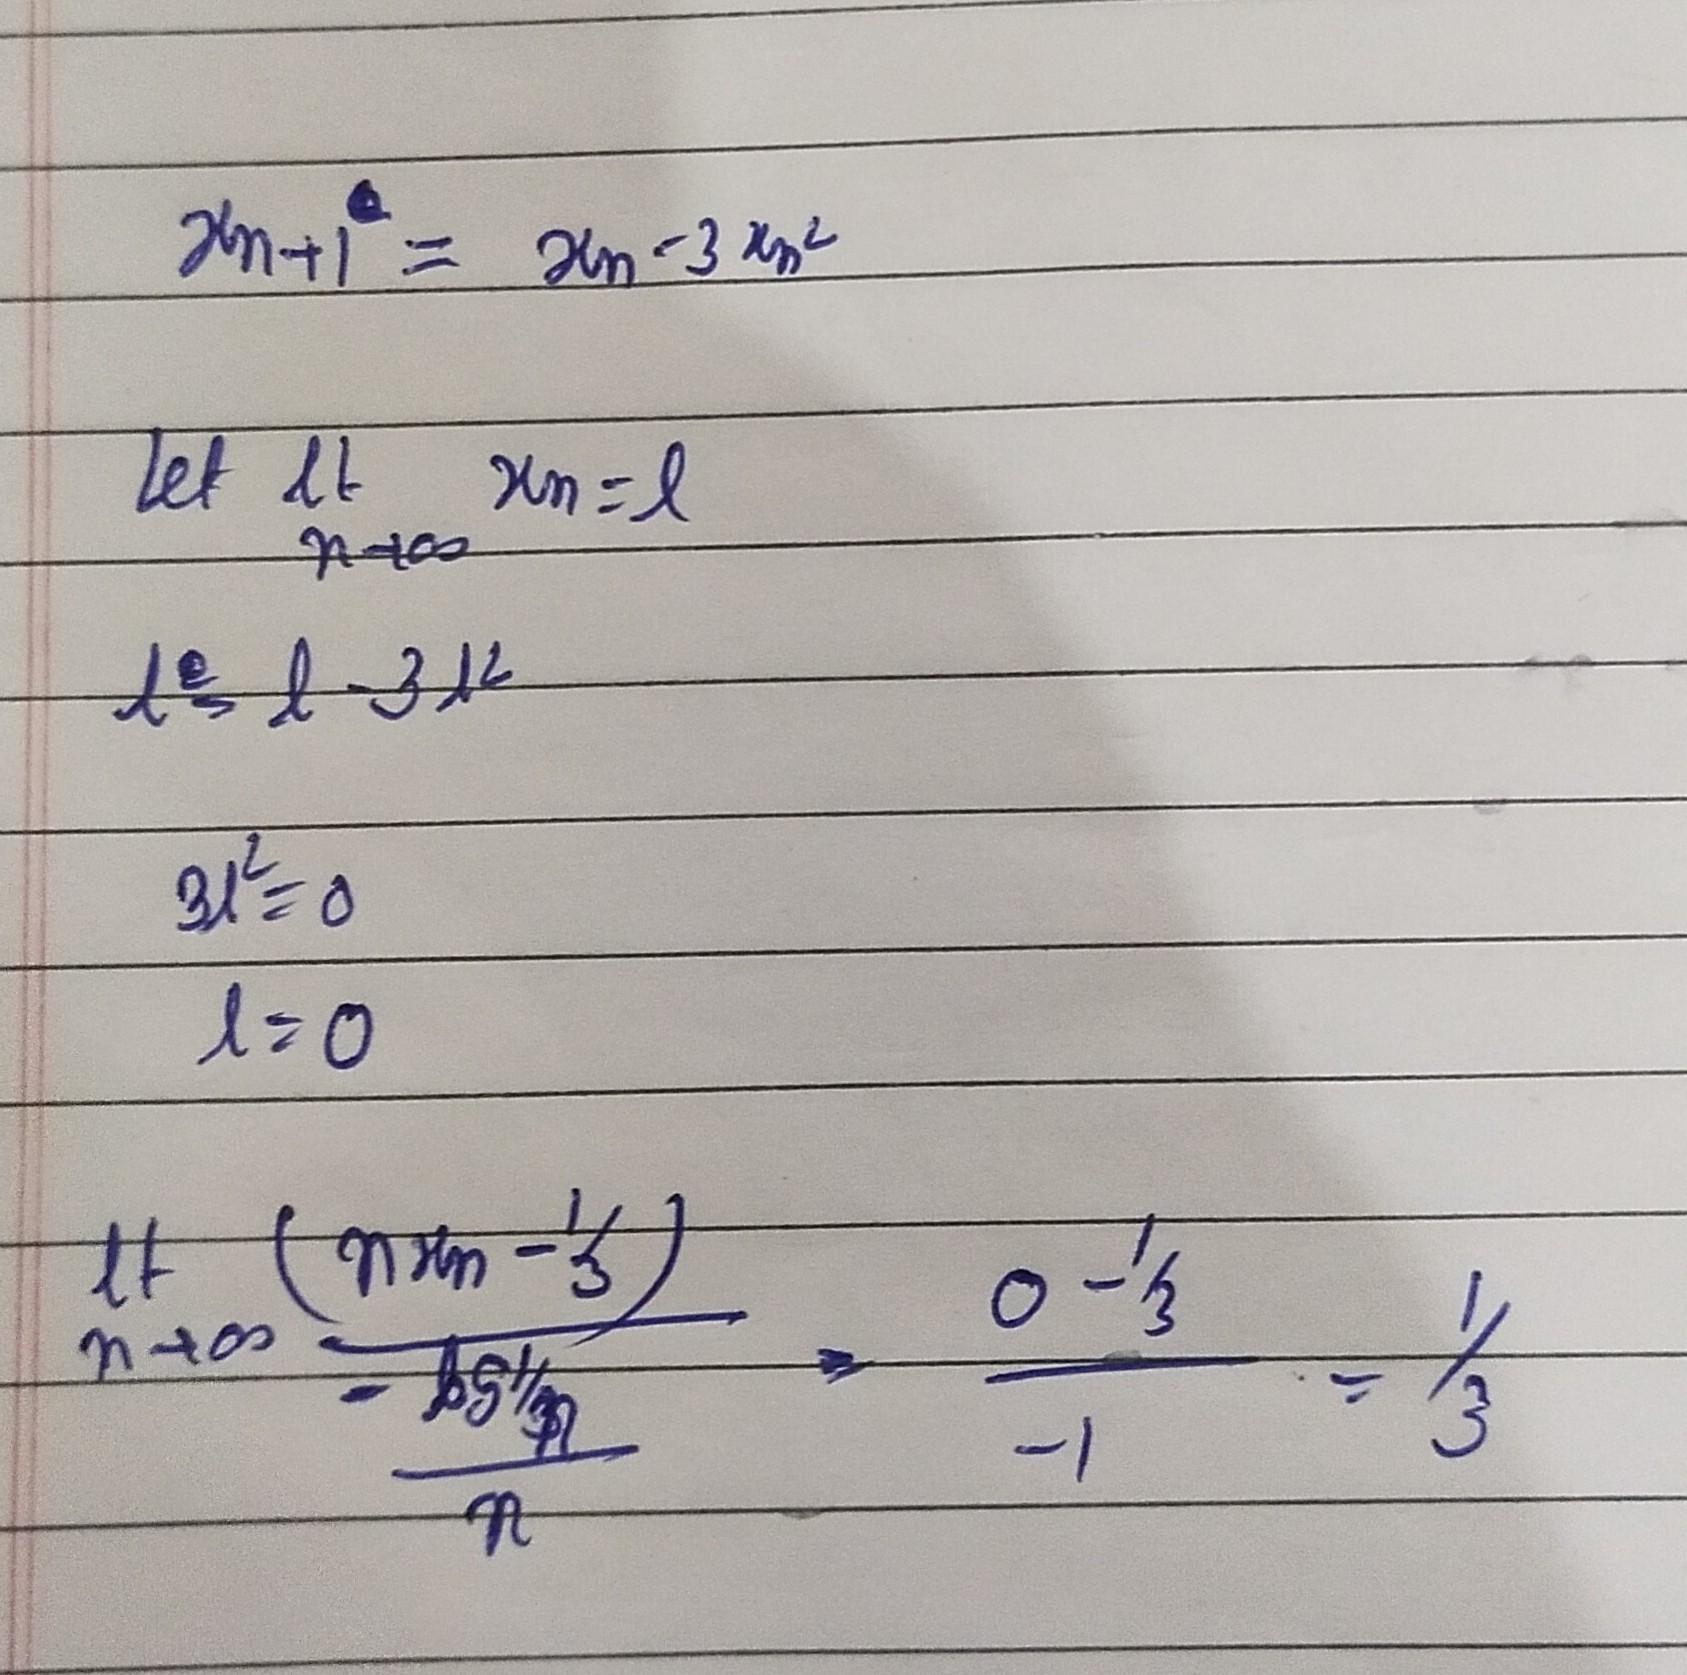 xn+1 = xn - 3xn²
Let lt xn = l
n→∞
l = l - 3l²
3l² = 0
l = 0
lt (nxn - 1/3) 0 - 1/3
n→∞ = 1/3
- -1
n